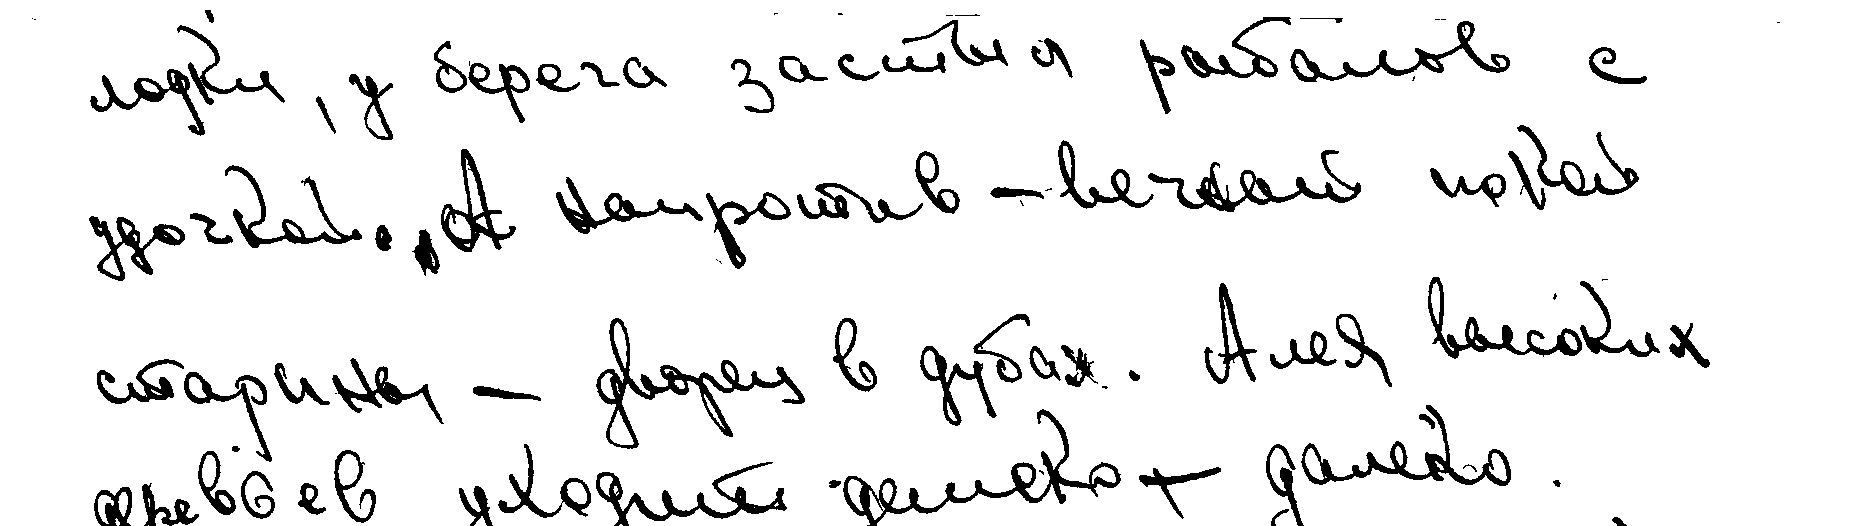 лодки, у берега застыл рыболов с
удочкой. А напротив – вечный покой
старины – дворец в дубах. Алея высоких
деревьев уходит далеко – далеко.